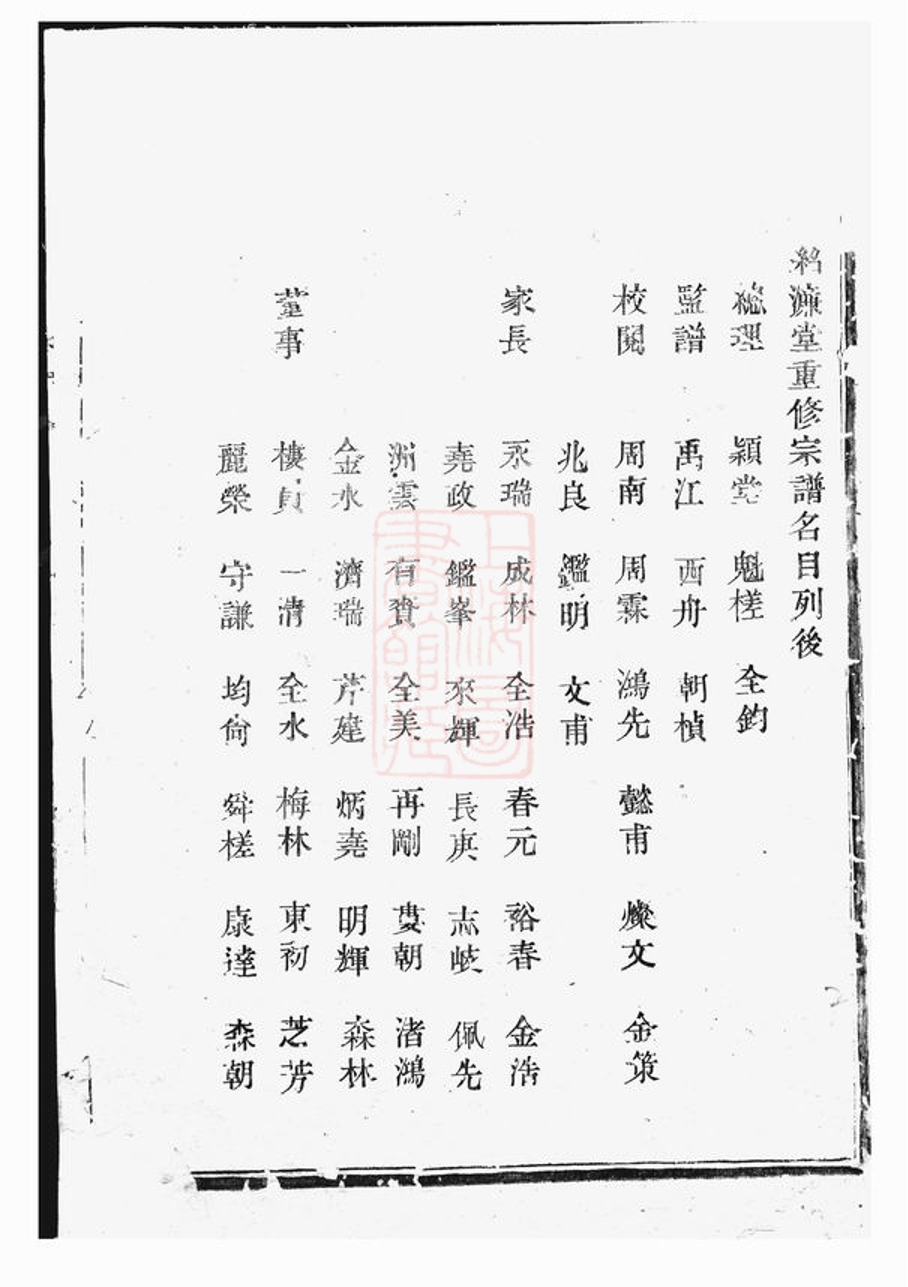 紹濂堂重修宗譜名目列後
總理 穎堂 魁槎 全鈞
監譜 禹江 西舟 朝楨
校閱 周南 周霖 鴻先 懿甫 燦文 金策
兆良 鑑明 文甫
家長 永瑞 成林 全浩 春元 裕春 金浩
堯政 鑑峯 來輝 長庚 志岐 佩先
洲雲 有貴 全美 再剛 朝 渚鴻
金水 濟瑞 芹建 炳堯 明輝 森林
董事 棲貞 一清 全水 梅林 東初 芝芳
麗榮 守謙 均尙 舜槎 康達 森朝
上海圖書館藏